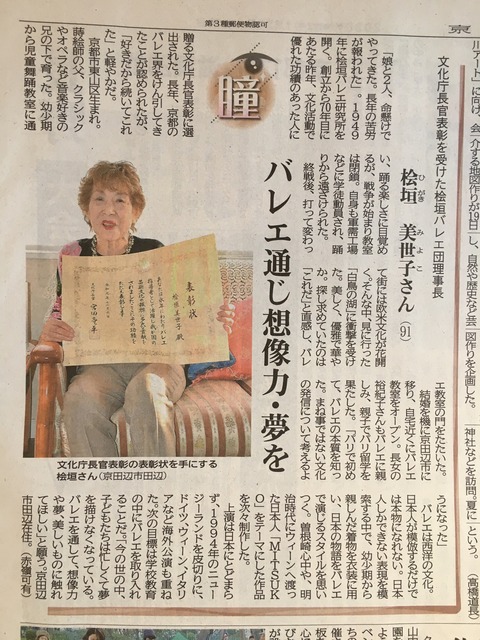 第3種郵便物認可
京
瞳
文化庁長官表彰を受けた桧垣バレエ団理事長
桧垣 美世子さん(91)
ひがき みよこ
バレエ通じ想像力・夢を
「娘と2人、命懸けで
やってきた。長年の苦労
が報われた」。1949
年に桧垣バレエ研究所を
開く。創立から70年目に
あたる昨年、文化活動で
優れた功績のあった人に
贈る文化庁長官表彰に選
出された。長年、京都の
バレエ界をけん引してき
たことが認められたが、
「好きだから続いてこれ
た」と軽やかだ。
京都市東山区生まれ。
蒔絵師の父、クラシック
やオペラなど音楽好きの
兄の下で育った。幼少期
から児童舞踊教室に通
い、踊る楽しさに目覚め
るが、戦争が始まり教室
は閉鎖。自身も軍需工場
などに学徒動員され、踊
りから遠ざけられた。
終戦後、打って変わっ
て街には欧米文化が花開
く。そんな中、見に行った
「白鳥の湖」に衝撃を受け
た。美しく、優雅で華や
か。探し求めていたのは
「これだ」と直感し、バレ
エ教室の門をたたいた。
結婚を機に京田辺市に
移り、自宅近くにバレエ
教室をオープン。長女の
裕紀子さんもバレエに親
しみ、親子でパリ留学を
果たした。「パリで初め
て、バレエの本質を知っ
た。まね事ではない文化
の発信について考えるよ
うになった」
バレエは西洋の文化。
日本人が模倣するだけで
は本物になれない。日本
人しかできない表現を模
索する中で、幼少期から
親しんだ着物を衣装に用
い、日本の物語をバレエ
で演じるスタイルを思い
つく。曽根崎心中や、明
治時代にウィーンへ渡っ
た日本人「MITSUK
O」をテーマにした作品
を次々制作した。
上演は日本にとどまら
ず、1994年のニュー
ジーランドを皮切りに、
ドイツ、ウィーン、イタリ
アなど海外公演も重ね
た。次の目標は学校教育
の中にバレエを取り入れ
ることだ。「今の世の中、
子どもたちは忙しくて夢
を描けなくなっている。
バレエを通して、想像力
や夢、美しいものに触れ
てほしい」と願う。京田辺
市田辺在住。(赤嶺可有)
表彰状
桧垣美世子殿
文化庁長官表彰の表彰状を手にする
桧垣さん(京田辺市田辺)
介する地図作りが19日
し、自然や歴史など芸
図作りを企画した。
神社などを訪問。夏に
という。
(高橋道長)